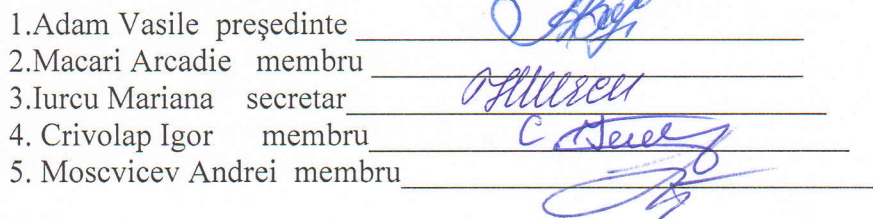 1.Adam Vasile președinte
2.Macari Arcadie membru
3.Iurcu Mariana secretar
4. Crivolap Igor membru
5. Moscvicev Andrei membru